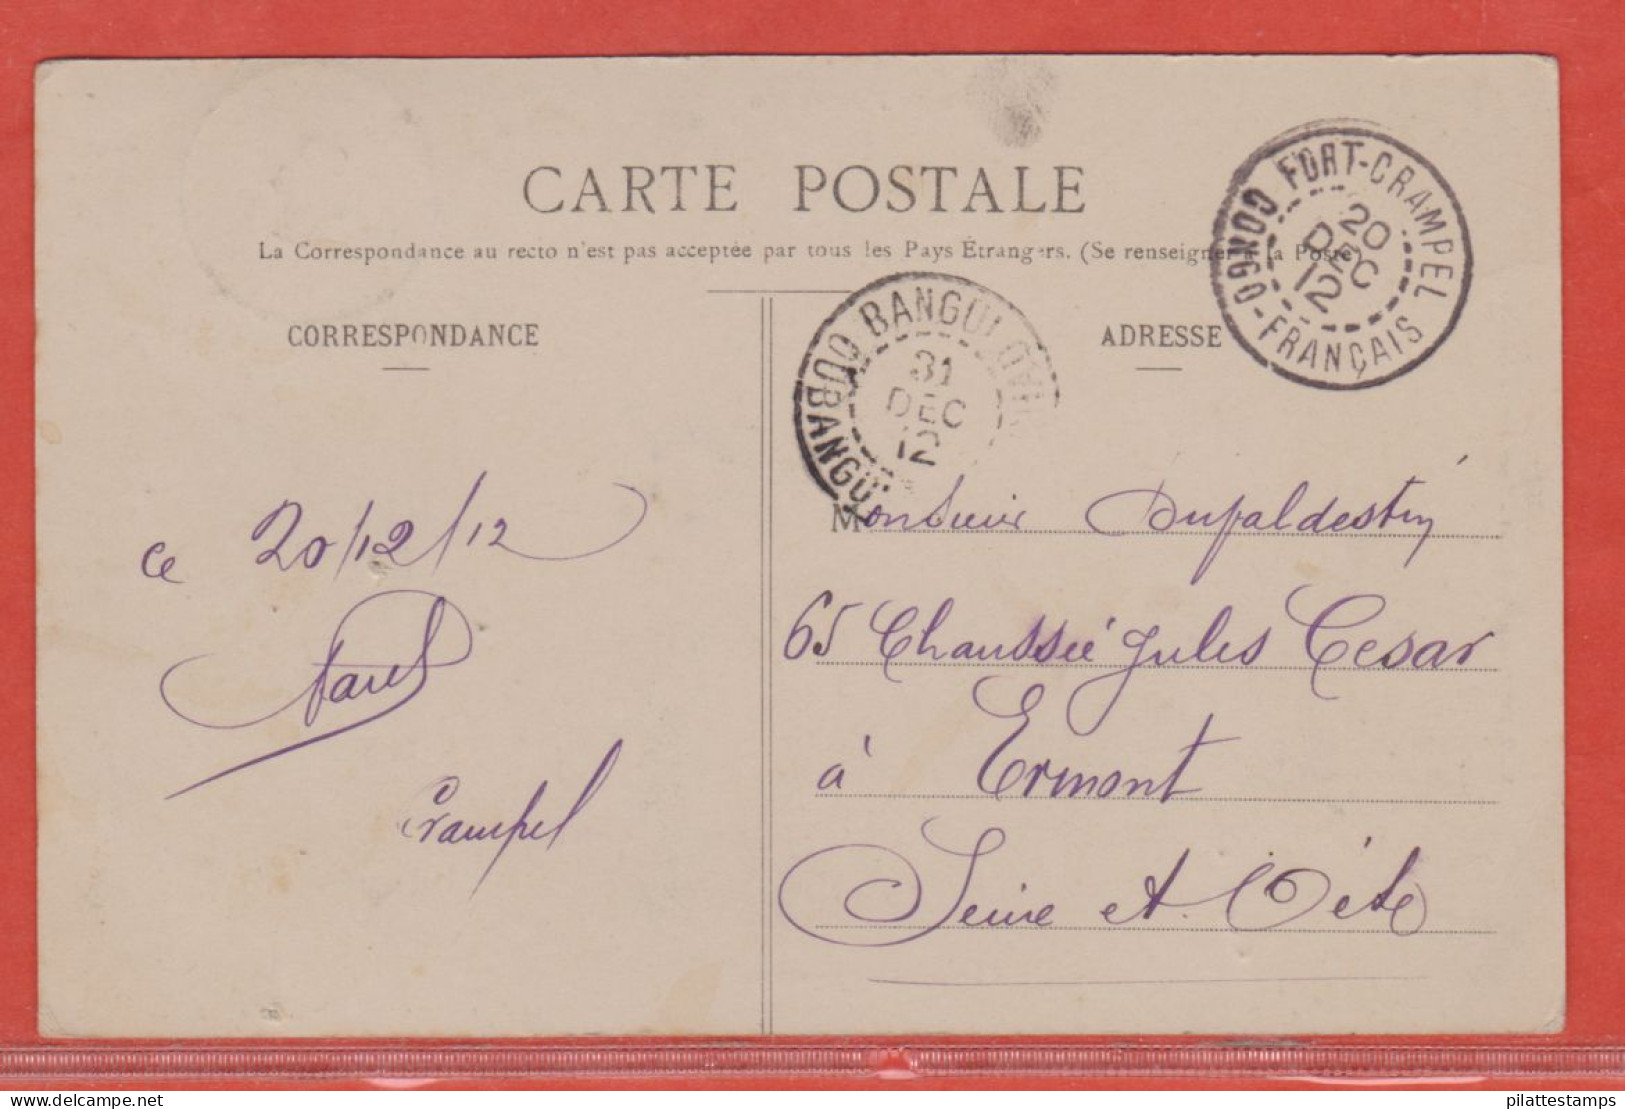 CARTE POSTALE
La Correspondance au recto n'est pas acceptée par tous les Pays Étrangers. (Se renseigner à la Poste)
CORRESPONDANCE
ADRESSE
FORT-CRAMPEL
CONGO-FRANÇAIS
20
DEC
12
BANGUI
31
DEC
12
ce 20/12/12
Crampel
Monsieur Dufaldestin
65 Chaussée Jules Cesar
à Ermont
Seine et Oise
delcampe.net
pilattestamps